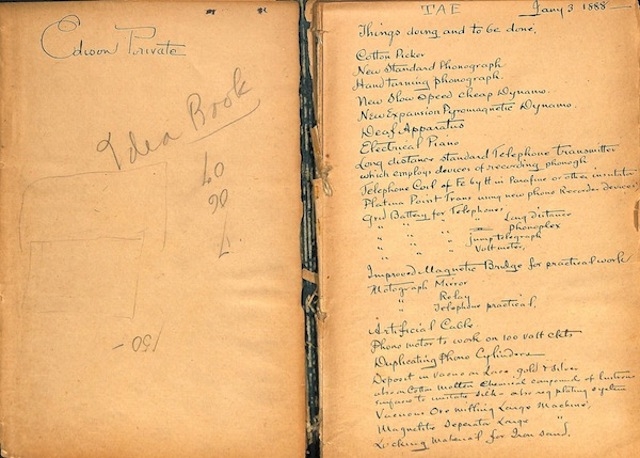 Edison Private
Idea Book
40
26
7
150 -
TAE Jany 3 1888
Things doing and to be done,
Cotton Picker
New Standard Phonograph
Hand turning phonograph
New Slow speed cheap Dynamo.
New Expansion Pyromagnetic Dynamo.
Deaf Apparatus
Electrical Piano
Long distance standard Telephone Transmitter
which employs devices of recording phonogh
Telephone Coil of Fe by tt in Parafine or other insulator
Platina Point Trans using new phono Recorder devices
Grid Battery for Telephones
" " " Long distance
" " " Phonoplex
" " " jump telegraph
" " " Voltmeter,
Improved Magnetic Bridge for practical work
Motograph Mirror
" Relay
" Telephone practical,
Artificial Cable,
Phono motor to work on 100 volt ckts
Duplicating Phono Cylinders
Deposit in vacuo on Lace, gold & silver
also on Cotton molten chemical compounds of lustrous
surfaces to imitate silk - also reg plating system
Vacuous Ore milling Large Machine,
Magnetite Seperator Large "
Locking material for Iron sand,